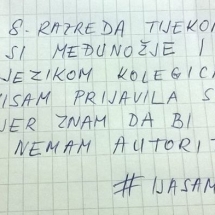 8. RAZREDA TIJEKOM
SI MEĐUNOŽJE I
JEZIKOM KOLEGICA
NISAM PRIJAVILA S
JER ZNAM DA BI
NEMAM AUTORIT
# IJASAM